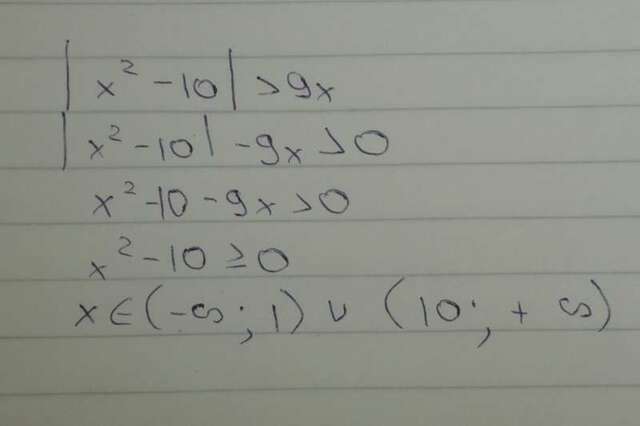 |x² - 10| > 9x
|x² - 10| - 9x > 0
x² - 10 - 9x > 0
x² - 10 ≥ 0
x ∈ (-∞; 1) ∪ (10; + ∞)